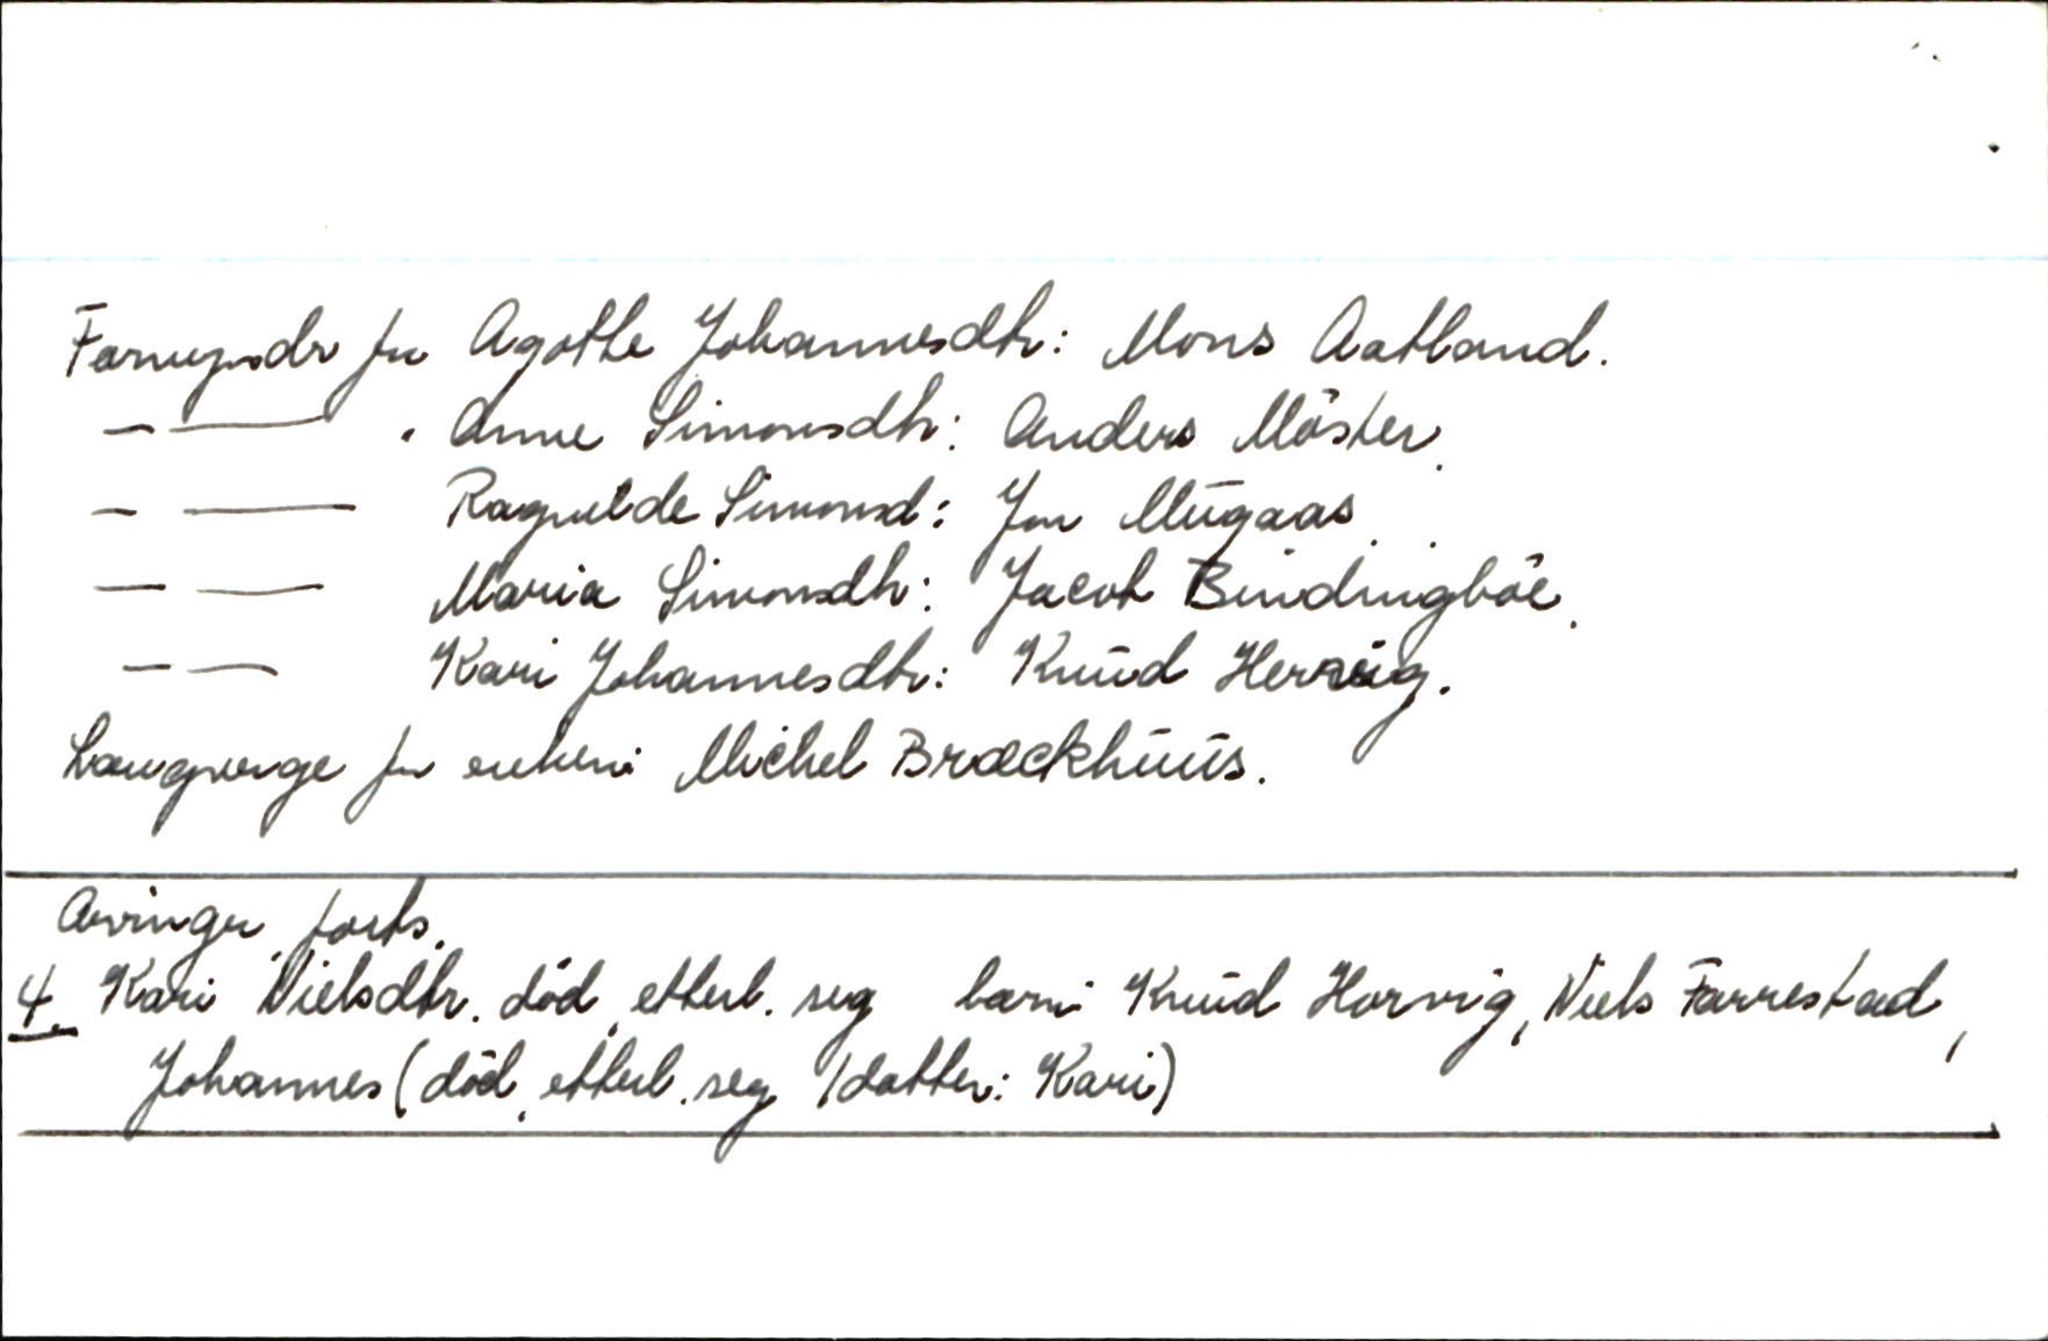 Formynder for Agothe Johannesdtr: Mons Aatland.
— — . Anne Simonsdtr: Anders Möster.
— — Ragnilde Simonsd: Jon Mūgaas.
— — Maria Simonsdtr: Jacob Bindingböe.
— — Kari Johannesdtr: Knūd Hervig.
Laugverge for enken: Michel Brackhūūs.
Arvinger forts.
4. Kari Nielsdtr. död, etterl. seg barn: Knūd Horvig, Niels Farrestad,
Johannes (död, etterl. seg 1 datter: Kari)